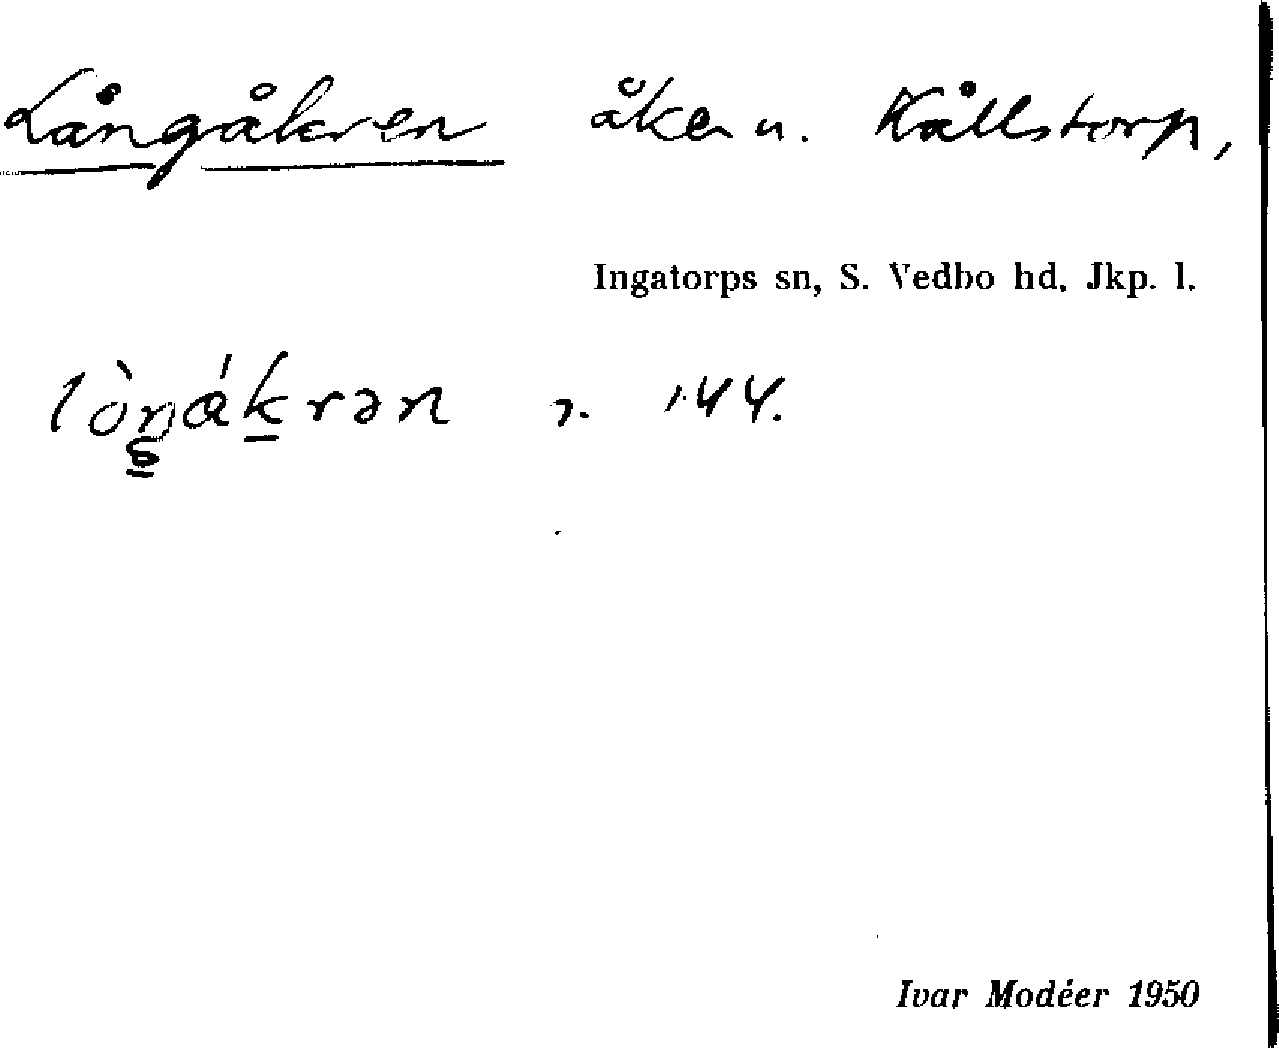 Långåkren åker u. Kållstorp,
Ingatorps sn, S. Vedbo hd, Jkp. l.
lòŋákrən
Ivar Modéer 1950